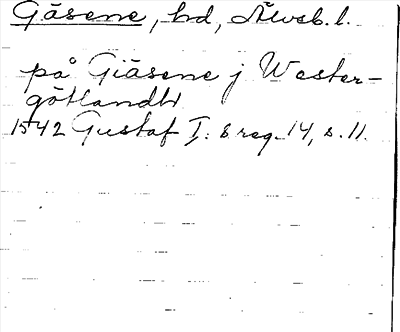 Gäsene, hd, Älvsb. l.
på Giäsene j Wester-
götlandh
1542 Gustaf I: s reg. 14, s. 11.